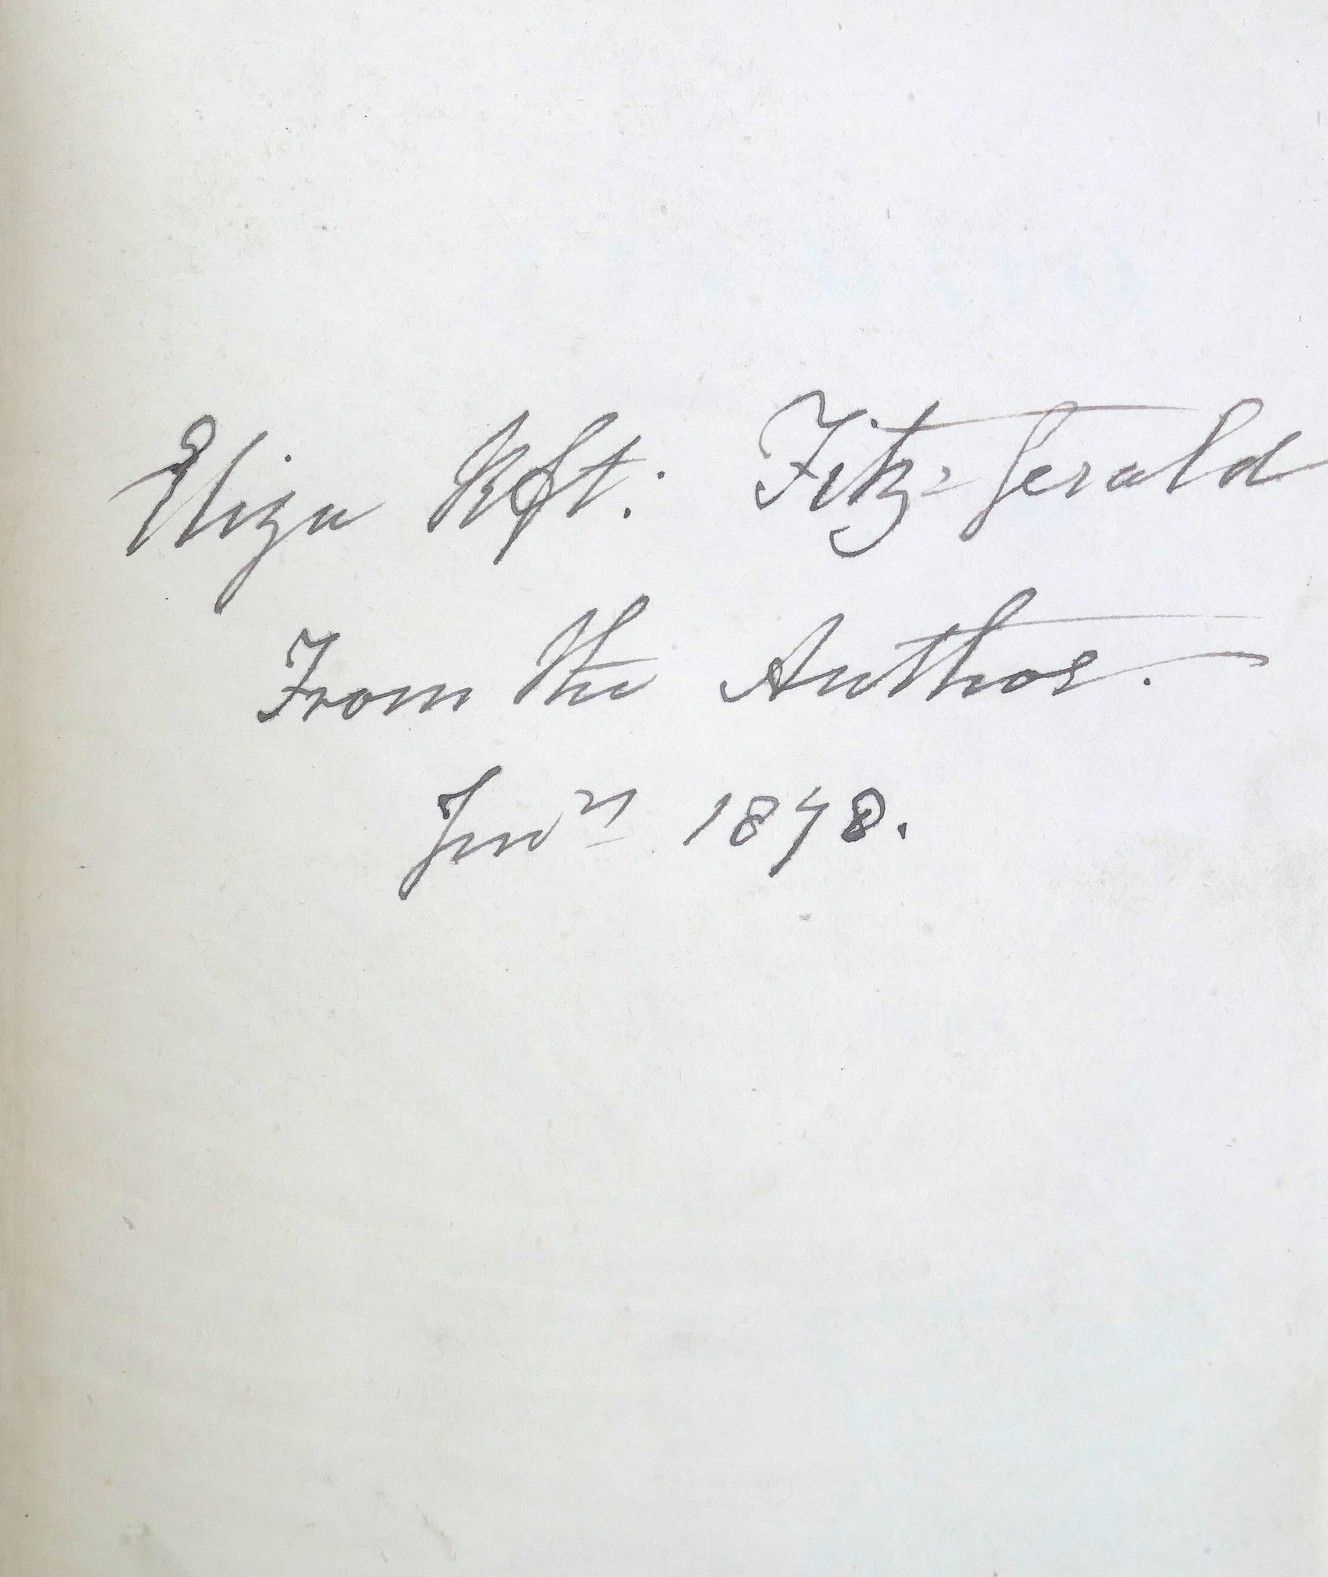 Eliza Fitz-Gerald
From the Author.
Jan^y 1878.